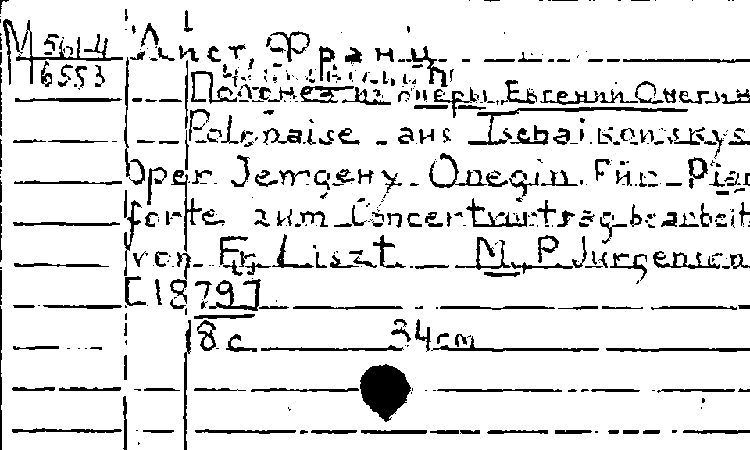 М 561-4 Лист, Франц
6553 Чайковский П
Полонез из оперы "Евгений Онегин
Polonaise aus Tschaikowskys
Oper Jemgeny Onegin. Für Pian
forte zum Concertvortrag bearbeit
von Fr. Liszt M., P. Jurgenson
[1879]
18 с 34 cm